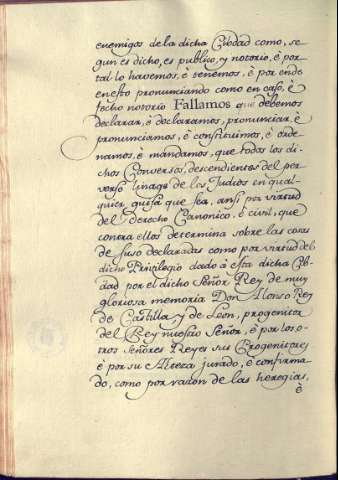 enemigos de la dicha Ciudad como, se
gun es dicho, es publico, y notorio, è por
tal lo havemos, è tenemos, è por ende
en esto pronunciando como en caso, è
fecho notorio Fallamos que debemos
declarar, è declaramos, pronunciar, è
pronunciamos, è constituimos, è orde
namos, è mandamos, que todos los di-
chos Conversos, descendientes del per
verso linage de los Judios en qual
quier guisa que sea, ansi por virtud
del Derecho Canonico, è civil, que
contra ellos determina sobre las cosas
de suso declaradas como por virtud del
dicho Privilegio dado à esta dicha Cib-
dad por el dicho Señor Rey de muy
gloriosa memoria Don Alonso Rey
de Castilla y de Leon, progenitor
del Rey nuestro Señor, è por los o-
tros Señores Reyes sus Progenitores,
è por su Alteza jurado, è confirma-
do, como por razon de las heregias,
è